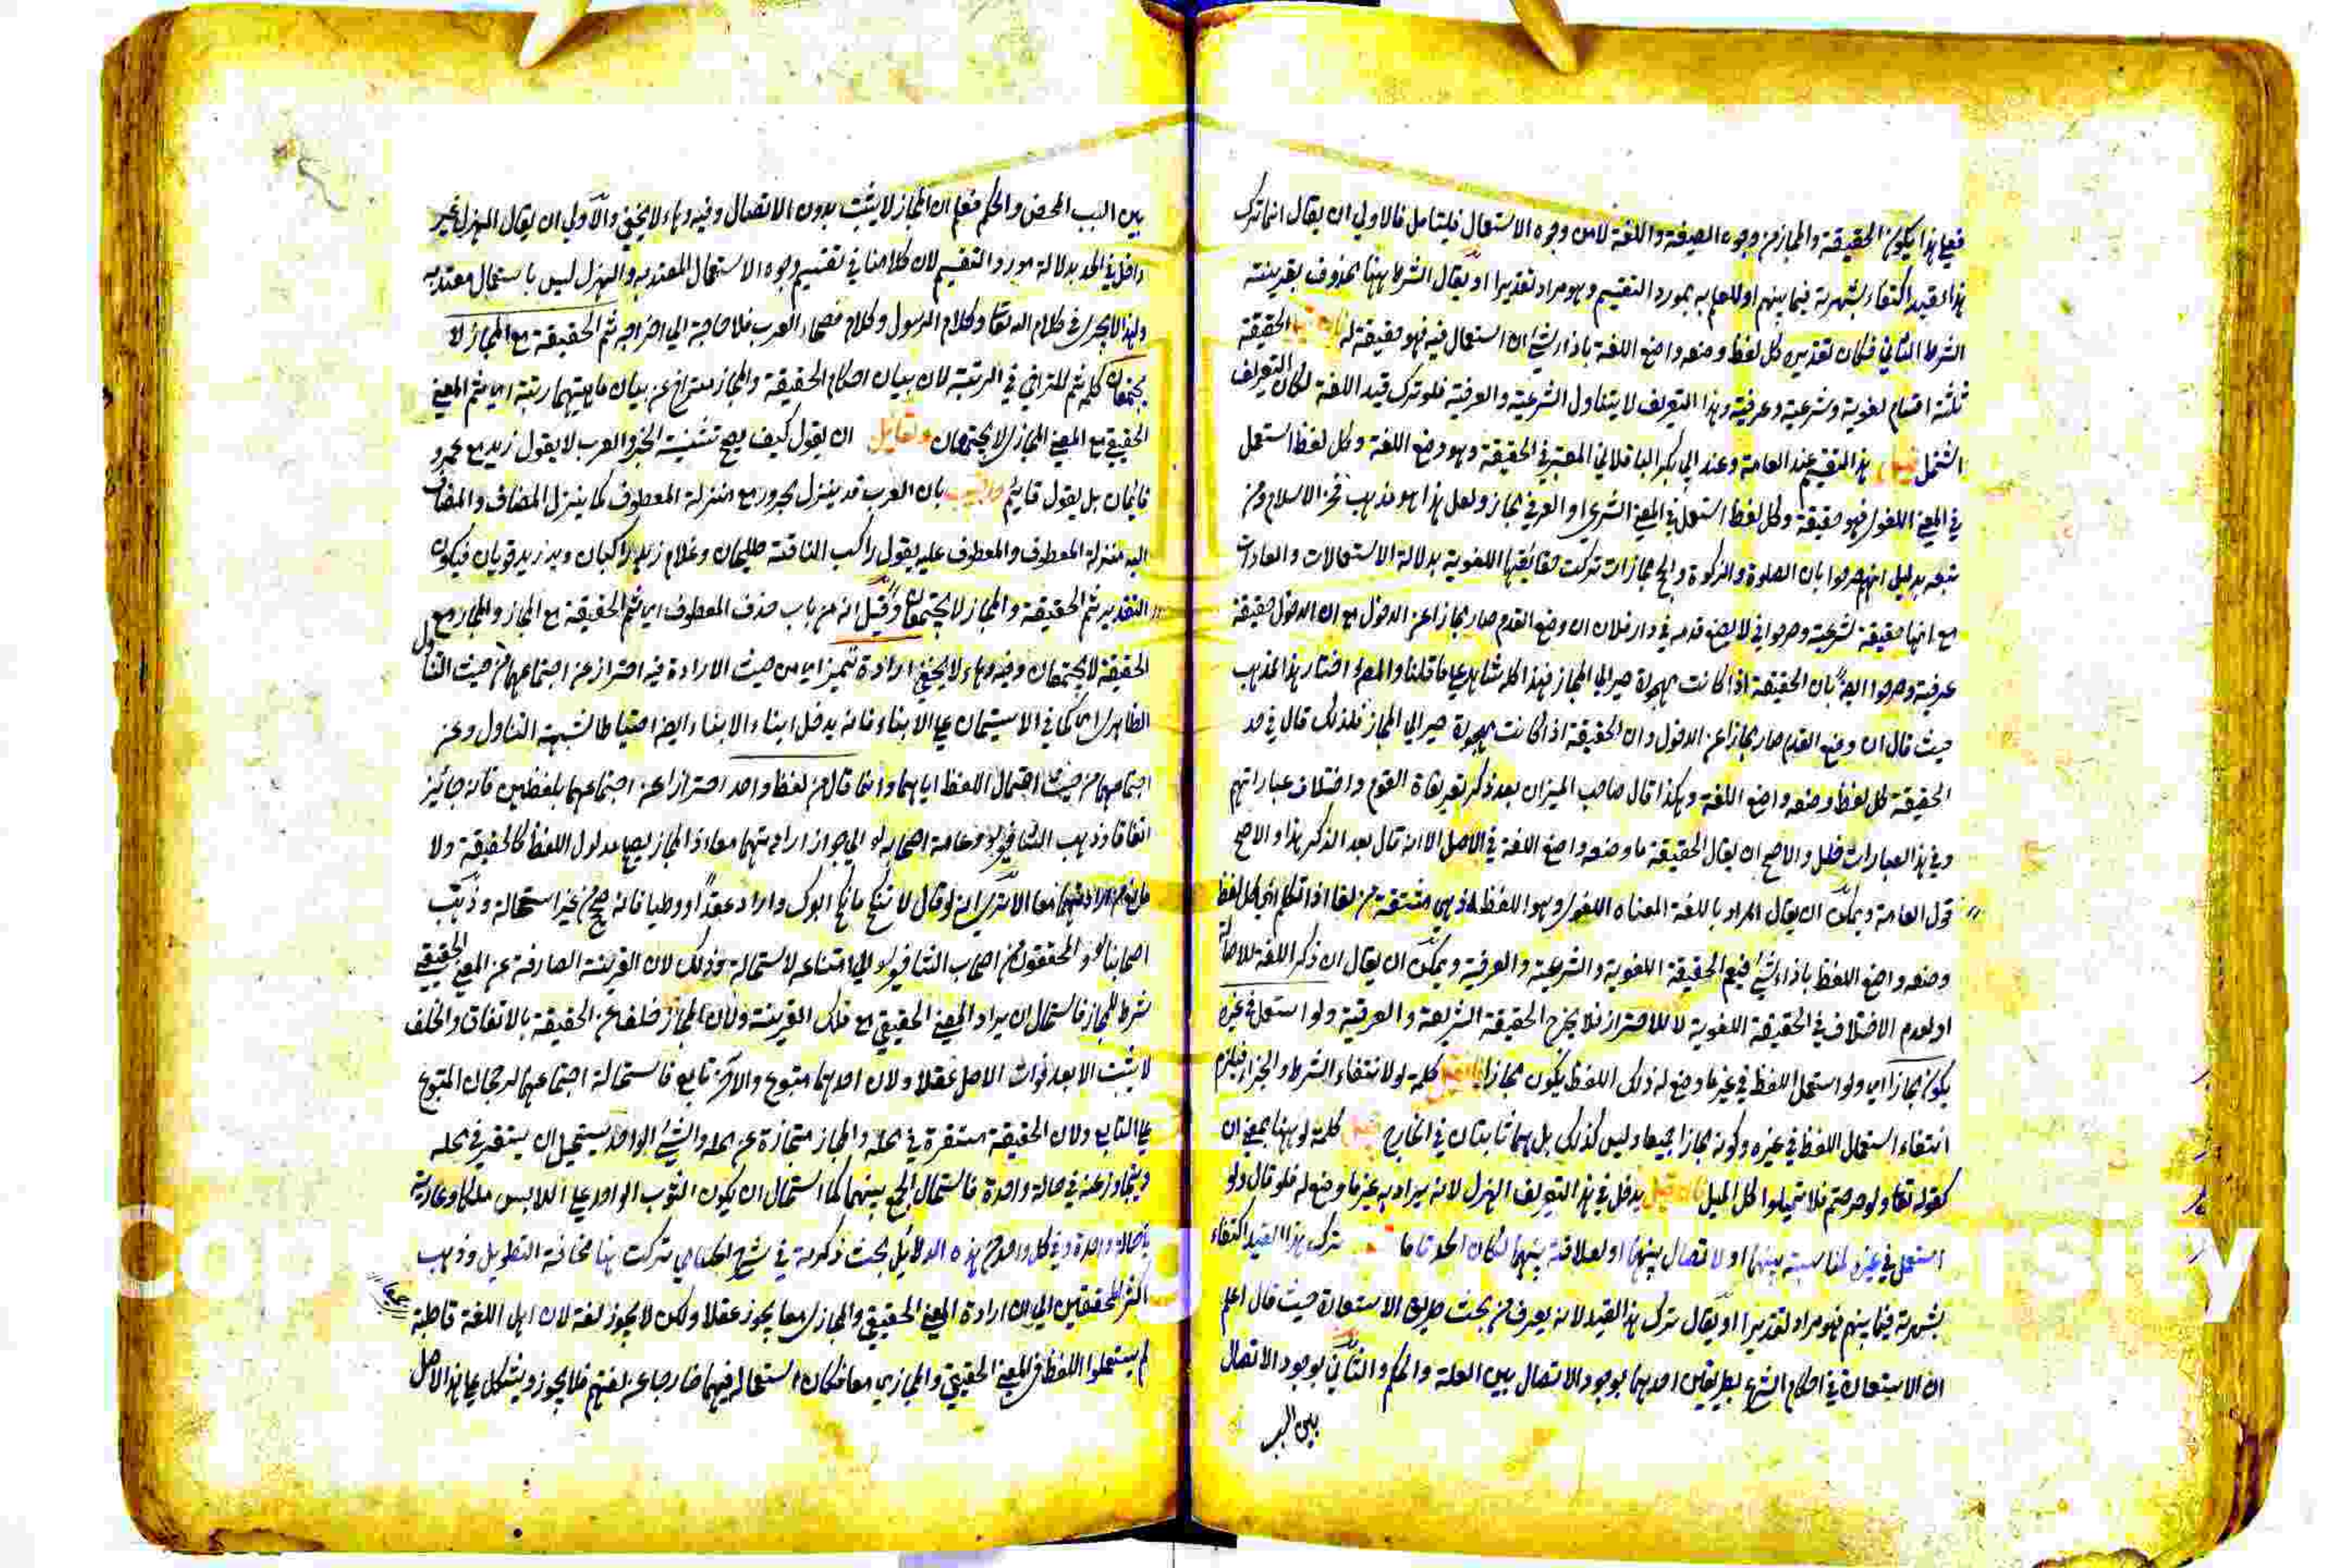 فعلى هذا يكون الحقيقة والمجاز من وجوه الصيغة واللغة لا من وجوه الاستعمال فليتأمل فالاولى ان يقال انما ترك
هذا القيد اكتفاء بشهرته فيما بينهم او للعلم به بمورد التقسيم وهو مراد تقديرا او يقال الشرط ههنا محذوف بقرينته
الشرط الثاني فكان تقديره كل لفظ وضعه واضع اللغة باذاء شيء ان استعمال فيه فهو حقيقة له الحقيقة
ثلثة اقسام لغوية وشرعية وعرفية وهذا التعريف لا يتناول الشرعية والعرفية فلو ترك قيد اللغة لكان التعريف
اشتمل هذا التقسيم عند العامة وعند ابي بكر الباقلاني المعتبر في الحقيقة وهو وضع اللغة وكل لفظ استعمل
في المعنى اللغوي فهو حقيقة وكل لفظ استعمل في المعنى الشرعي او العرفي مجاز ولعل هذا هو مذهب فخر الاسلام ومن
تبعه بدليل انهم صرحوا بان الصلوة والزكوة والحج مجازات تركت حقائقها اللغوية بدلالة الاستعمالات والعادات
مع انها حقيقة شرعية وصرحوا في لا يضع قدمه في دار فلان ان وضع القدم صار مجازا عن الدخول مع ان الدخول حقيقة
عرفية وصرحوا ايضا بان الحقيقة اذا كانت مهجورة صير الى المجاز فهذا كله شاهد على ما قلنا والمص اختار هذا المذهب
حيث قال ان وضع القدم صار مجازا عن الدخول وان الحقيقة اذا كانت مهجورة صير الى المجاز فلذلك قال في حد
الحقيقة كل لفظ وضعه واضع اللغة وهكذا قال صاحب الميزان بعد ذكر تعريفات القوم واختلاف عباراتهم
وفي هذه العبارات خلل والاصح ان يقال الحقيقة ما وضعه واضع اللغة في الاصل الا انه قال بعد الذكر هذا والاصح
قول العامة ويمكن ان يقال المراد باللغة المعناه اللغوي وهو اللفظ اذ هي مشتقة من لغا اذا تكلم اي كل لفظ
وضعه واضع اللفظ باذاء شيء فيعم الحقيقة اللغوية والشرعية والعرفية ويمكن ان يقال ان ذكر اللغة للاصالة
او لعدم الاختلاف في الحقيقة اللغوية لا للاحتراز فلا يخرج الحقيقة الشريعة والعرفية ولو استعمل في غيره
يكون مجازا اي ولو استعمل اللفظ في غير ما وضع له ذلك اللفظ يكون مجازا كلمة لو لانتفاء الشرط والجزاء فيلزم
انتفاء استعمال اللفظ في غيره وكونه مجازا جميعا وليس كذلك بل هما ثابتان في الخارج كلمة لو ههنا بمعنى ان
كقوله تعا ولو حرصتم فلا تميلوا كل الميل فان قيل يدخل في هذا التعريف الهزل لانه يراد به غير ما وضع له فلو قال ولو
استعمل في غيره لمناسبة بينهما او لاتصال بينهما او لعلاقة بينهما لكان الحد تاما ترك هذا القيد اكتفاء
بشهرته فيما بينهم فهو مراد تقديرا او يقال ترك هذا القيد لانه يعرف من بحث طريق الاستعارة حيث قال اعلم
ان الاستعارة في احكام الشرع بطريقين احدهما بوجود الاتصال بين العلة والحكم والثاني بوجود الاتصال
بين السبب
بين السبب المحض والحكم فعلم ان المجاز لا يثبت بدون الاتصال وفيه وهاء لا يخفى والاولى ان يقال الهزل غير
داخل في الحد بدلالة مورد التقسيم لان كلامنا في تقسيم وجوه الاستعمال المعتد به والهزل ليس باستعمال معتد به
ولهذا لا يجري في كلام الله تعا وكلام الرسول وكلام فصحاء العرب فلا حاجة الى اخراجه ثم الحقيقة مع المجاز لا
يجتمعان كلمة ثم للتراخي في الرتبة لان بيان احكام الحقيقة والمجاز متراخ عن بيان ماهيتهما رتبة اي ثم المعنى
الحقيقي مع المعنى المجازي لا يجتمعان ولقايل ان يقول كيف يصح تثنية الخبر والعرب لا يقول زيد مع عمرو
قايمان بل يقول قايم واجيب بان العرب قد ينزل مجرور مع منزلة المعطوف كما ينزل المضاف والمضاف
اليه منزلة المعطوف والمعطوف عليه يقول راكب الناقة طليحان وغلام زيد راكبان ويد زيد قويان فيكون
التقدير ثم الحقيقة والمجاز لا يجتمعان وقيل انه من باب حذف المعطوف اي ثم الحقيقة مع المجاز والمجاز مع
الحقيقة لا يجتمعان وفيه وهاء لا يخفى ارادة تميز اي من حيث الارادة فيه احتراز عن اجتماعهما من حيث التناول
الظاهري كما في الاستيمان على الابناء فانه يدخل ابناء الابناء ايضا احتياطا لشبهة التناول وعن
اجتماعهما من حيث احتمال اللفظ اياهما وانما قال من لفظ واحد احترازا عن اجتماعهما بلفظين فانه جائز
اتفاقا وذهب الشافعي وعامة اصحابه الى جواز ارادتهما معا اذ المجاز يصح مدلول اللفظ كالحقيقة ولا
مانع من ارادتهما معا الا ترى انه لو قال لا تنكح ما نكح ابوك واراد عقدا ووطيا فانه صح من غير استحالة وذهب
اصحابنا والمحققون من اصحاب الشافعي الى امتناعه لاستحالة وذلك لان القرينة الصارفة عن المعنى الحقيقي
شرط المجاز فاستحال ان يراد المعنى الحقيقي مع تلك القرينة ولان المجاز خلف عن الحقيقة بالاتفاق والخلف
لا يثبت الا بعد فوات الاصل عقلا ولان احدهما متبوع والآخر تابع فاستحالة اجتماعهما لرجحان المتبوع
على التابع ولان الحقيقة مستقرة في محله والمجاز متجازة عن محله والشيء الواحد يستحيل ان يستقر في محله
ويتجاوز عنه في حالة واحدة فاستحال الجمع بينهما كما استحال ان يكون الثوب الواحد على اللابس ملكا وعارية
في حالة واحدة وفي كل واحد من هذه الدلائل بحث ذكرته في شرح الحسامي تركت هنا مخافة التطويل وذهب
اكثر المحققين الى ان ارادة المعنى الحقيقي والمجازي معا يجوز عقلا ولكن لا يجوز لغة لان اهل اللغة قاطبة
لم يستعملوا اللفظ في المعنى الحقيقي والمجازي معا فكان استعماله فيهما خارجا عن لغتهم فلا يجوز ويشكل على هذا الاصل